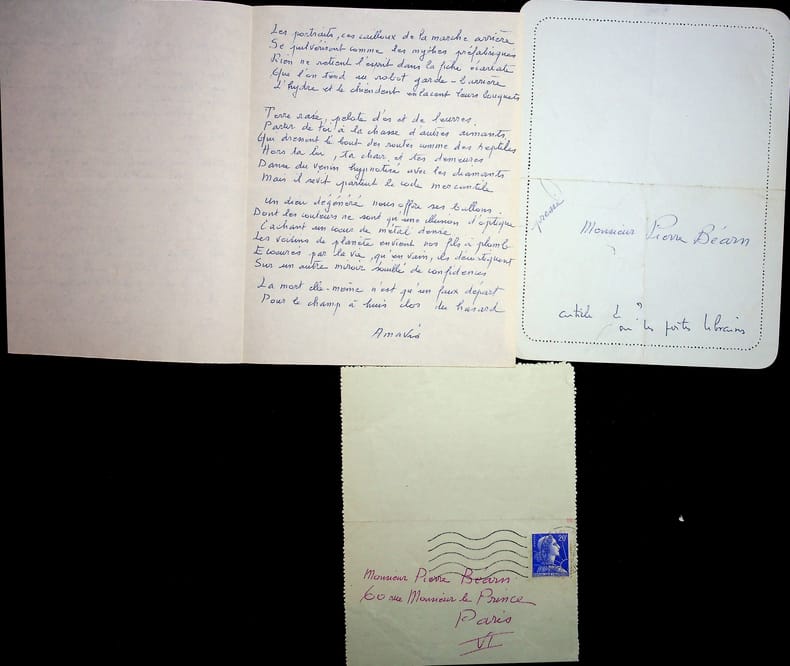 Les portraits, ces cailloux de la marche arrière
Se pulvérisent comme les mythes préfabriqués
Rien ne retient l'esprit dans la fiche écarlate
Que l'on tend au robot garde-barrière
L'hydre et le chiendent enlacent leurs bouquets
Terre rase, pelote d'os et de leurres
Partir de toi à la chasse d'autres aimants
Qui dressent le bout des routes comme des reptiles
Hors ta loi, ta chair et tes demeures
Danse du venin hypnotisé avec les diamants
Mais il sévit partout le code mercantile
Un dieu dégénéré nous offre ses ballons
Dont les couleurs ne sont qu'une illusion d'optique
Cachant un cœur de métal
Les voisins de planète envient nos fils à plomb
Ecœurés par la vie, qu'en vain, ils
Sur un autre miroir souillé de confidences
La mort elle-même n'est qu'un faux départ
Pour le champ à huis clos du hasard
Monsieur Pierre Béarn
article
ou les poètes libraires
Monsieur Pierre Béarn
60 rue Monsieur le Prince
Paris
VI
20F